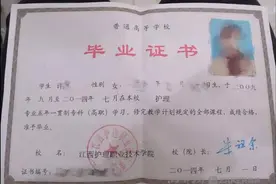 普通高等学校
毕业证书
学生 性别 女, 年 月 日生,于二〇〇九
年 九月至二〇一四年 七月在本校 护理
专业五年一贯制专科(高职)学习,修完教学计划规定的全部课程,成绩合格,
准予毕业。
校 名: 江西护理职业技术学院 校(院)长:
证书编号: 二〇一四年 七月 一日